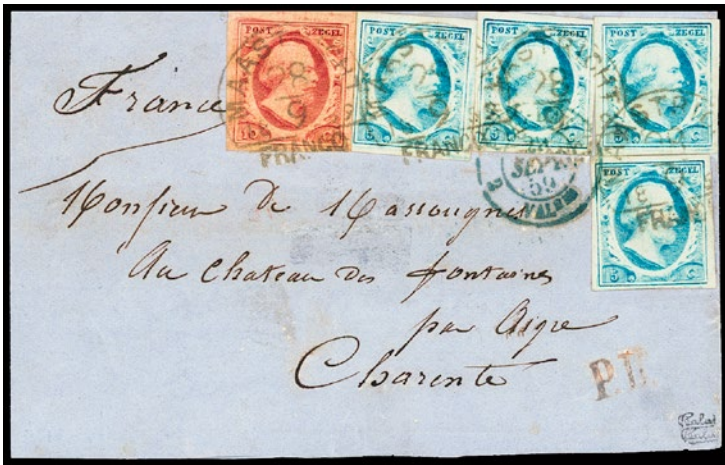 POST ZEGEL POST ZEGEL POST ZEGEL POST ZEGEL
France
10 c 5 c 5 c 5 c
MAASTRICHT
28
9
FRANCO
FRANCO
SEPT
59
POST ZEGEL
5 c
FRANCO
Monsieur de Massougnes
Au chateau des fontaines
par Aigre
Charente
P.D.